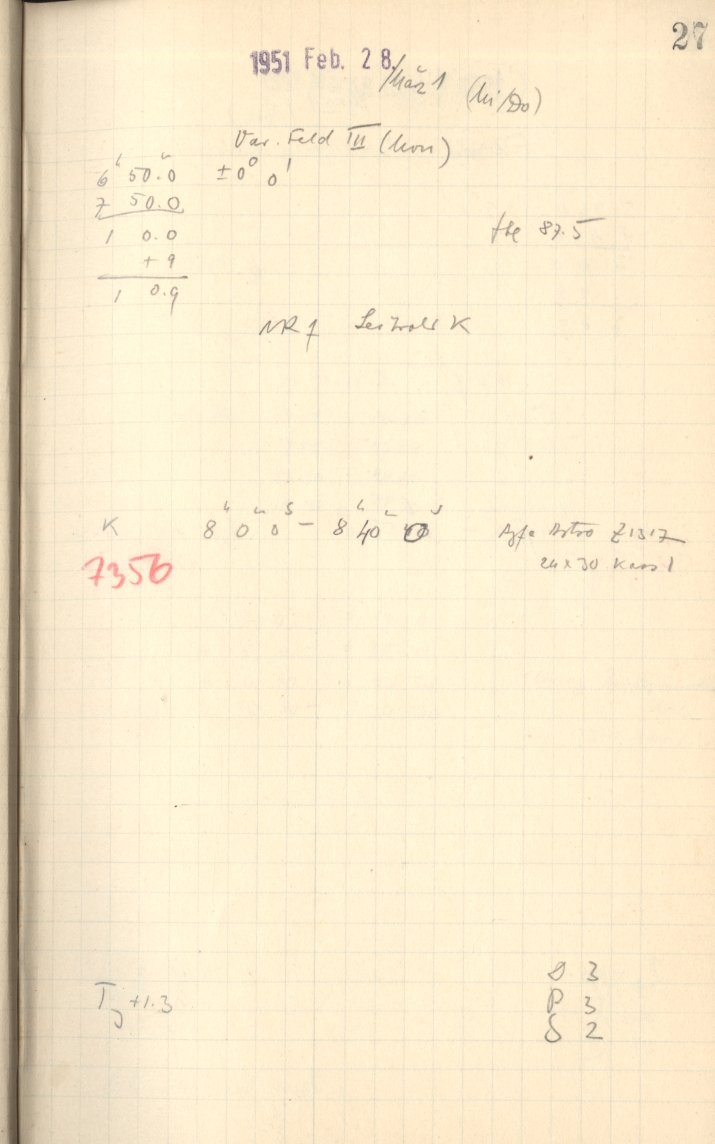 27
1951 Feb. 28/März 1 (Mi/Do)
Var. Feld III (Mon)
6h 50.0m ±0° 0'
7 50.0
1 0.0
+9
1 0.9
87.5
NR 7 K
K 8h 0m 0s – 8h 40m 0s Agfa Astro Z1317
7356 24x30 Kass 1
D 3
Tj +1.3 P 3
S 2